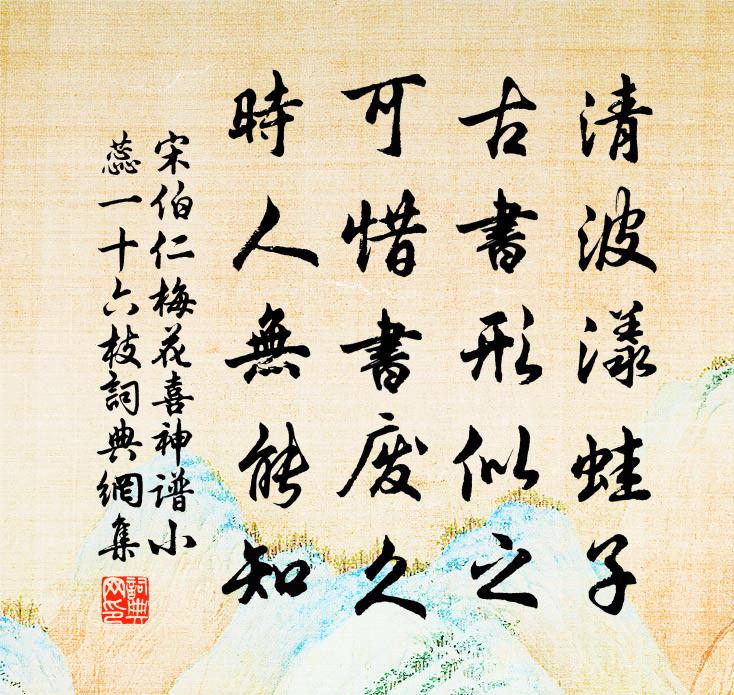 清波漾蛙子
古書形似之
可惜書廢久
時人無能知
宋伯仁梅花喜神谱小
蕊一十六枝詞典網集
詞典網印